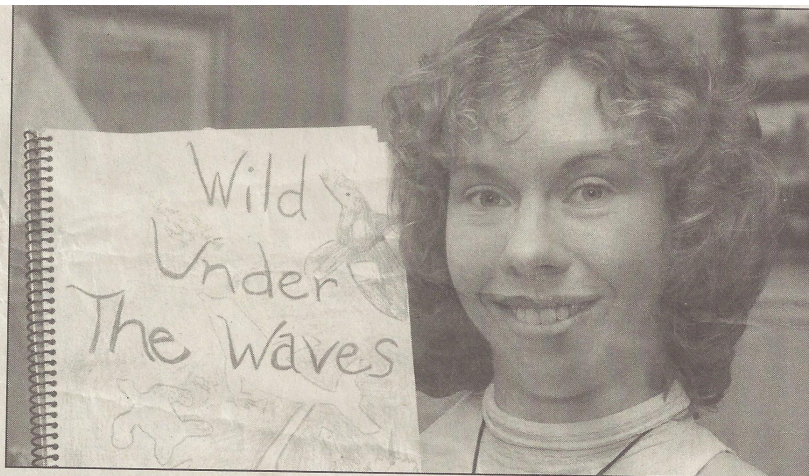 Wild
Under
The Waves